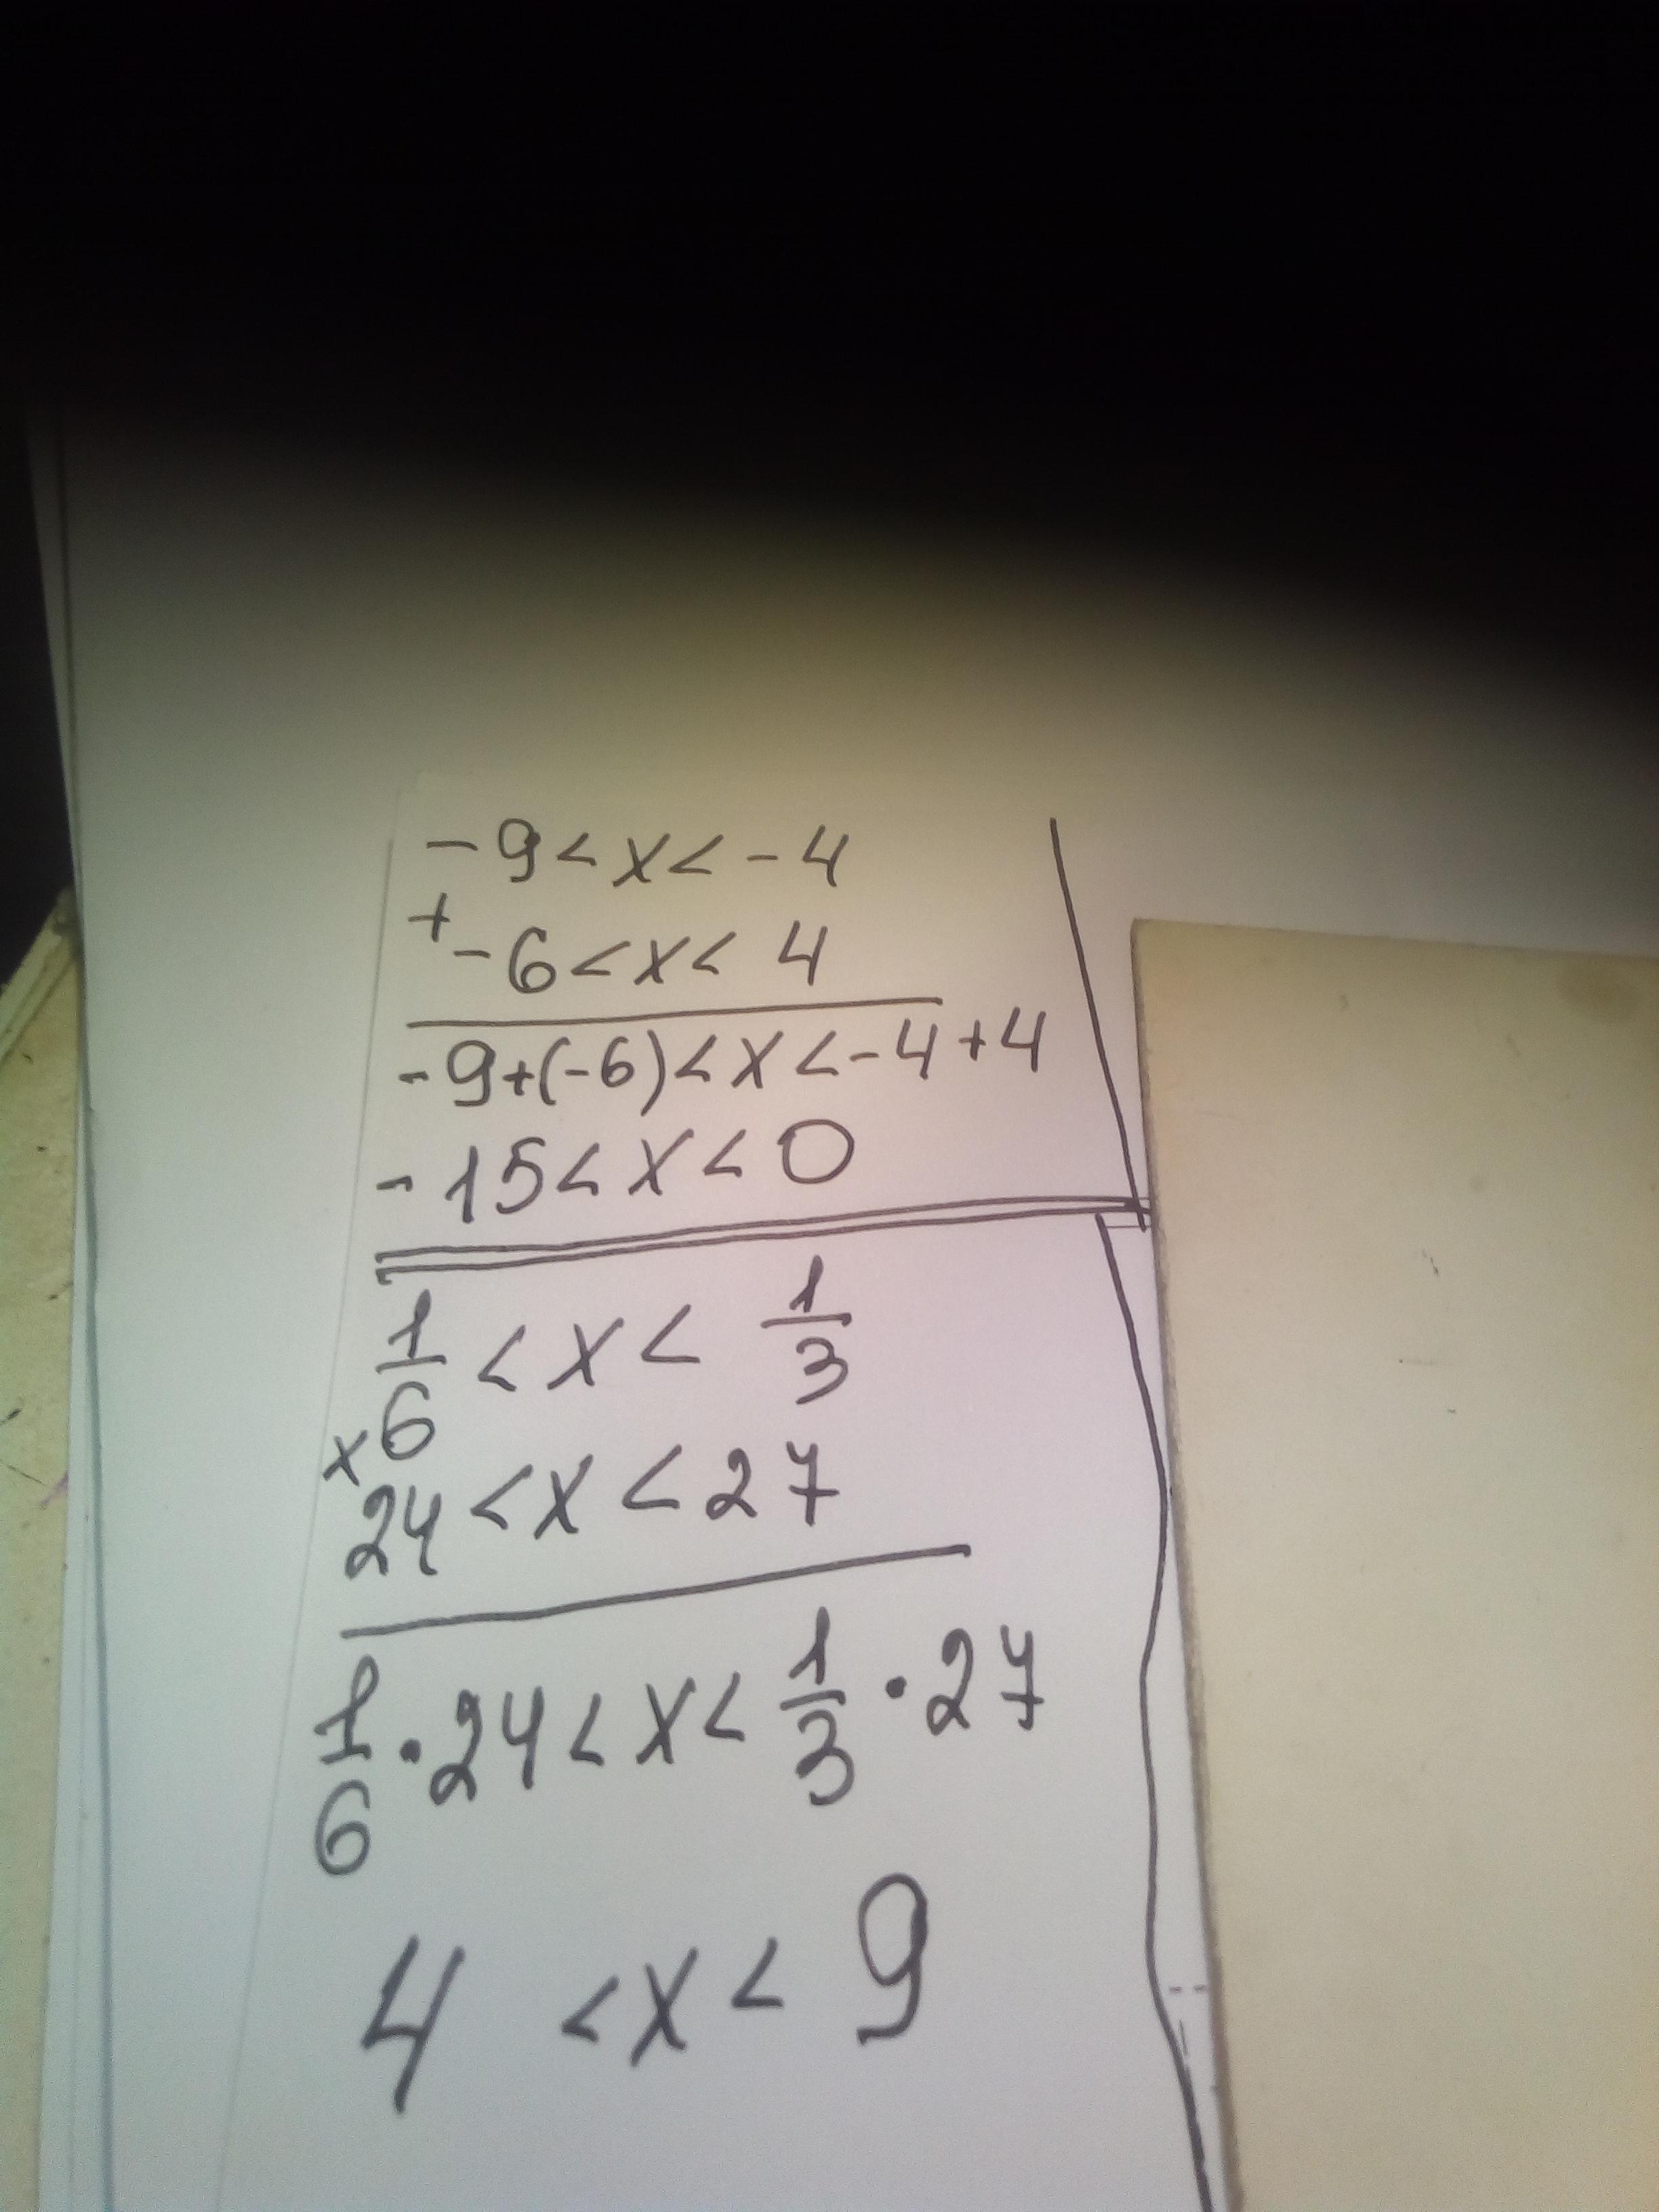 -9 < x < -4
+
-6 < x < 4
-9+(-6) < x < -4+4
-15 < x < 0
1/6 < x < 1/3
×
24 < x < 27
1/6 · 24 < x < 1/3 · 27
4 < x < 9